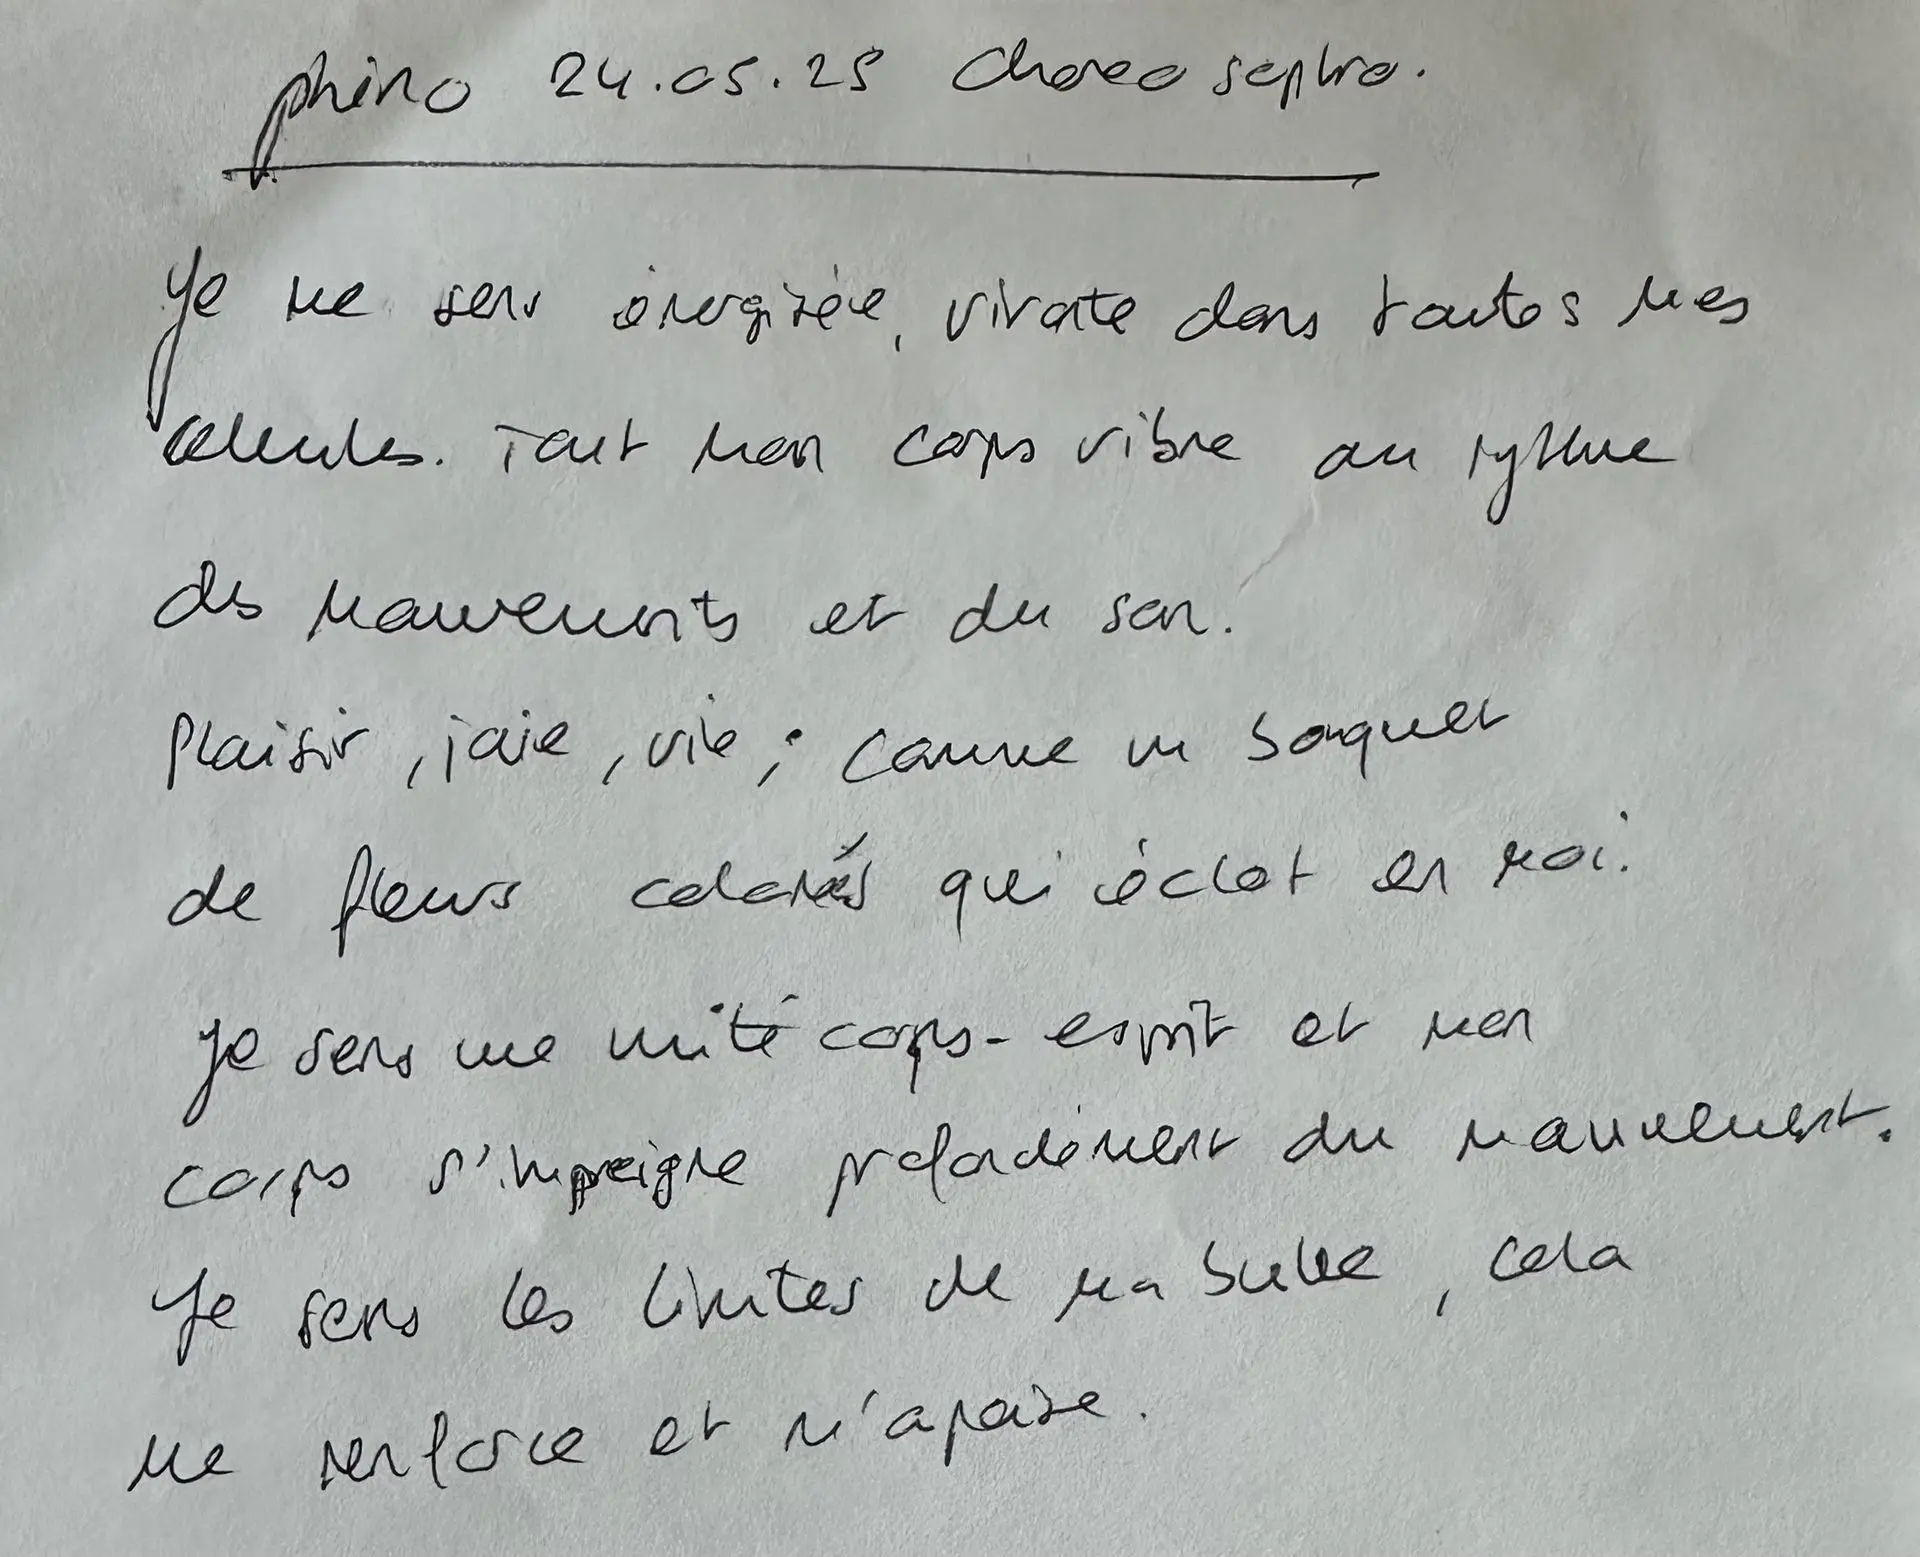 phéno 24.05.25 Choreo sophro.
Je me sens énergisée, vivante dans toutes mes
cellules. Tout mon corps vibre au rythme
des mouvements et du son.
Plaisir, joie, vie ; comme un bouquet
de fleurs colorés qui éclot en moi.
Je sens une unité corps-esprit et mon
corps s'impreigne profondément du mouvement.
Je sens les limites de ma bulle, cela
me renforce et m'apaise.